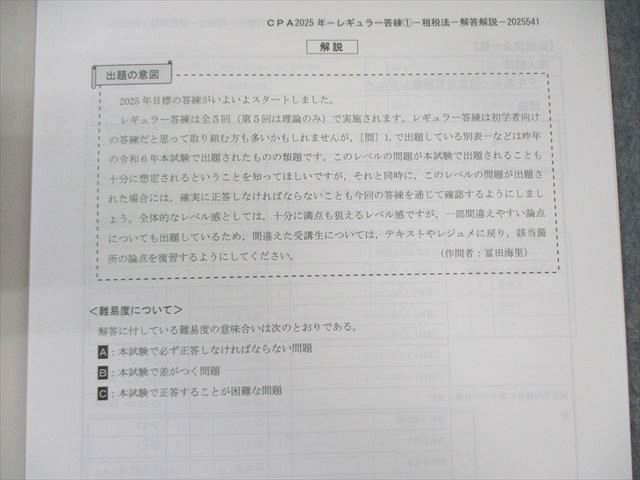 CPA2025年－レギュラー答練①－租税法－解答解説－2025541
解説
出題の意図
2025年目標の答練がいよいよスタートしました。
レギュラー答練は全５回（第５回は理論のみ）で実施されます。レギュラー答練は初学者向け
の答練だと思って取り組む方も多いかもしれませんが，［問］1．で出題している別表一などは昨年
の令和６年本試験で出題されたものの類題です。このレベルの問題が本試験で出題されることも
十分に想定されるということを知ってほしいですが，それと同時に，このレベルの問題が出題
された場合には，確実に正答しなければならないことも今回の答練を通じて確認するようにしまし
ょう。全体的なレベル感としては，十分に満点も狙えるレベル感ですが，一部間違えやすい論点
についても出題しているため，間違えた受講生については，テキストやレジュメに戻り，該当箇
所の論点を復習するようにしてください。
（作問者：冨田海里）
＜難易度について＞
解答に付している難易度の意味合いは次のとおりである。
A：本試験で必ず正答しなければならない問題
B：本試験で差がつく問題
C：本試験で正答することが困難な問題